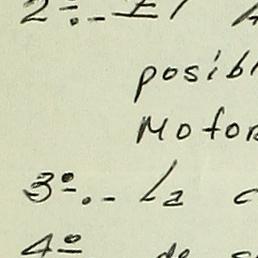 2º.-
posibl
Motor
3º.- La c
4º de